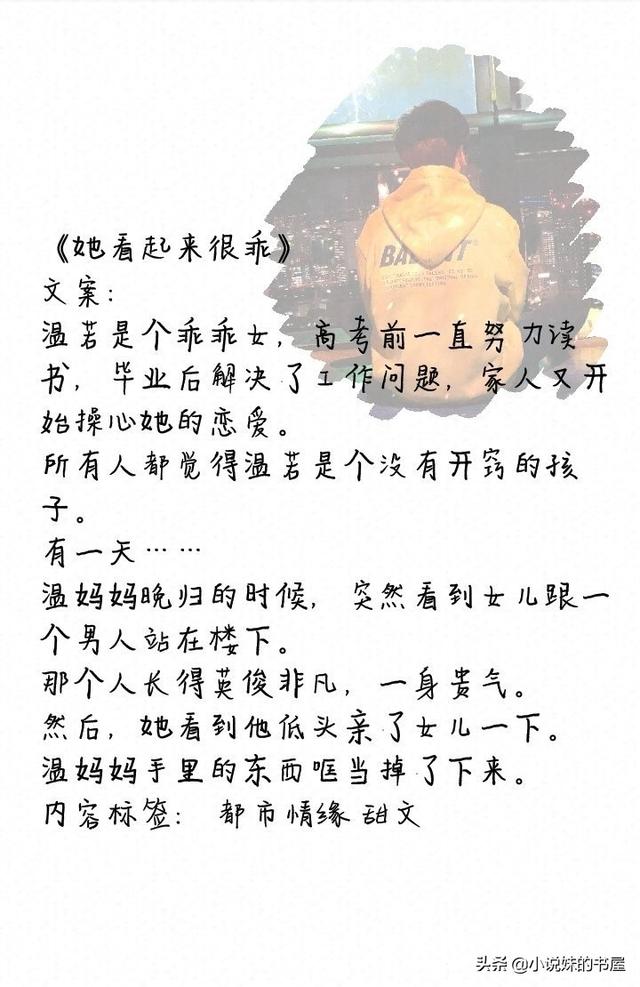 BA
《她看起来很乖》
文案：
温若是个乖乖女，高考前一直努力读
书，毕业后解决了工作问题，家人又开
始操心她的恋爱。
所有人都觉得温若是个没有开窍的孩
子。
有一天……
温妈妈晚归的时候，突然看到女儿跟一
个男人站在楼下。
那个人长得英俊非凡，一身贵气。
然后，她看到他低头亲了女儿一下。
温妈妈手里的东西哐当掉了下来。
内容标签：都市情缘 甜文
头条 @小说妹的书屋